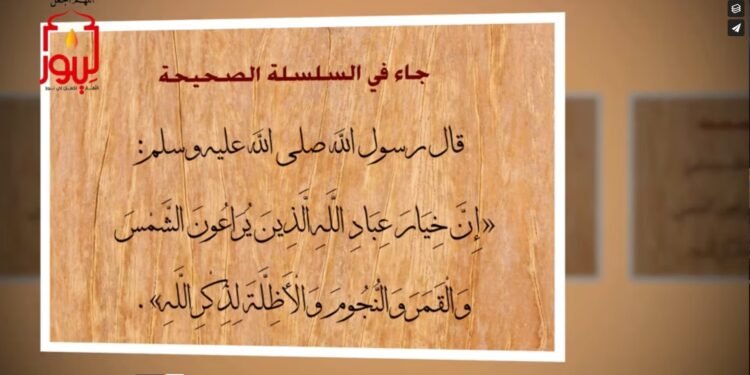 جاء في السلسلة الصحيحة
قال رسول الله صلى الله عليه وسلم:
«إِنَّ خِيَارَ عِبَادِ اللَّهِ الَّذِينَ يُرَاعُونَ الشَّمْسَ
وَالْقَمَرَ وَالنُّجُومَ وَالْأَظِلَّةَ لِذِكْرِ اللَّهِ».